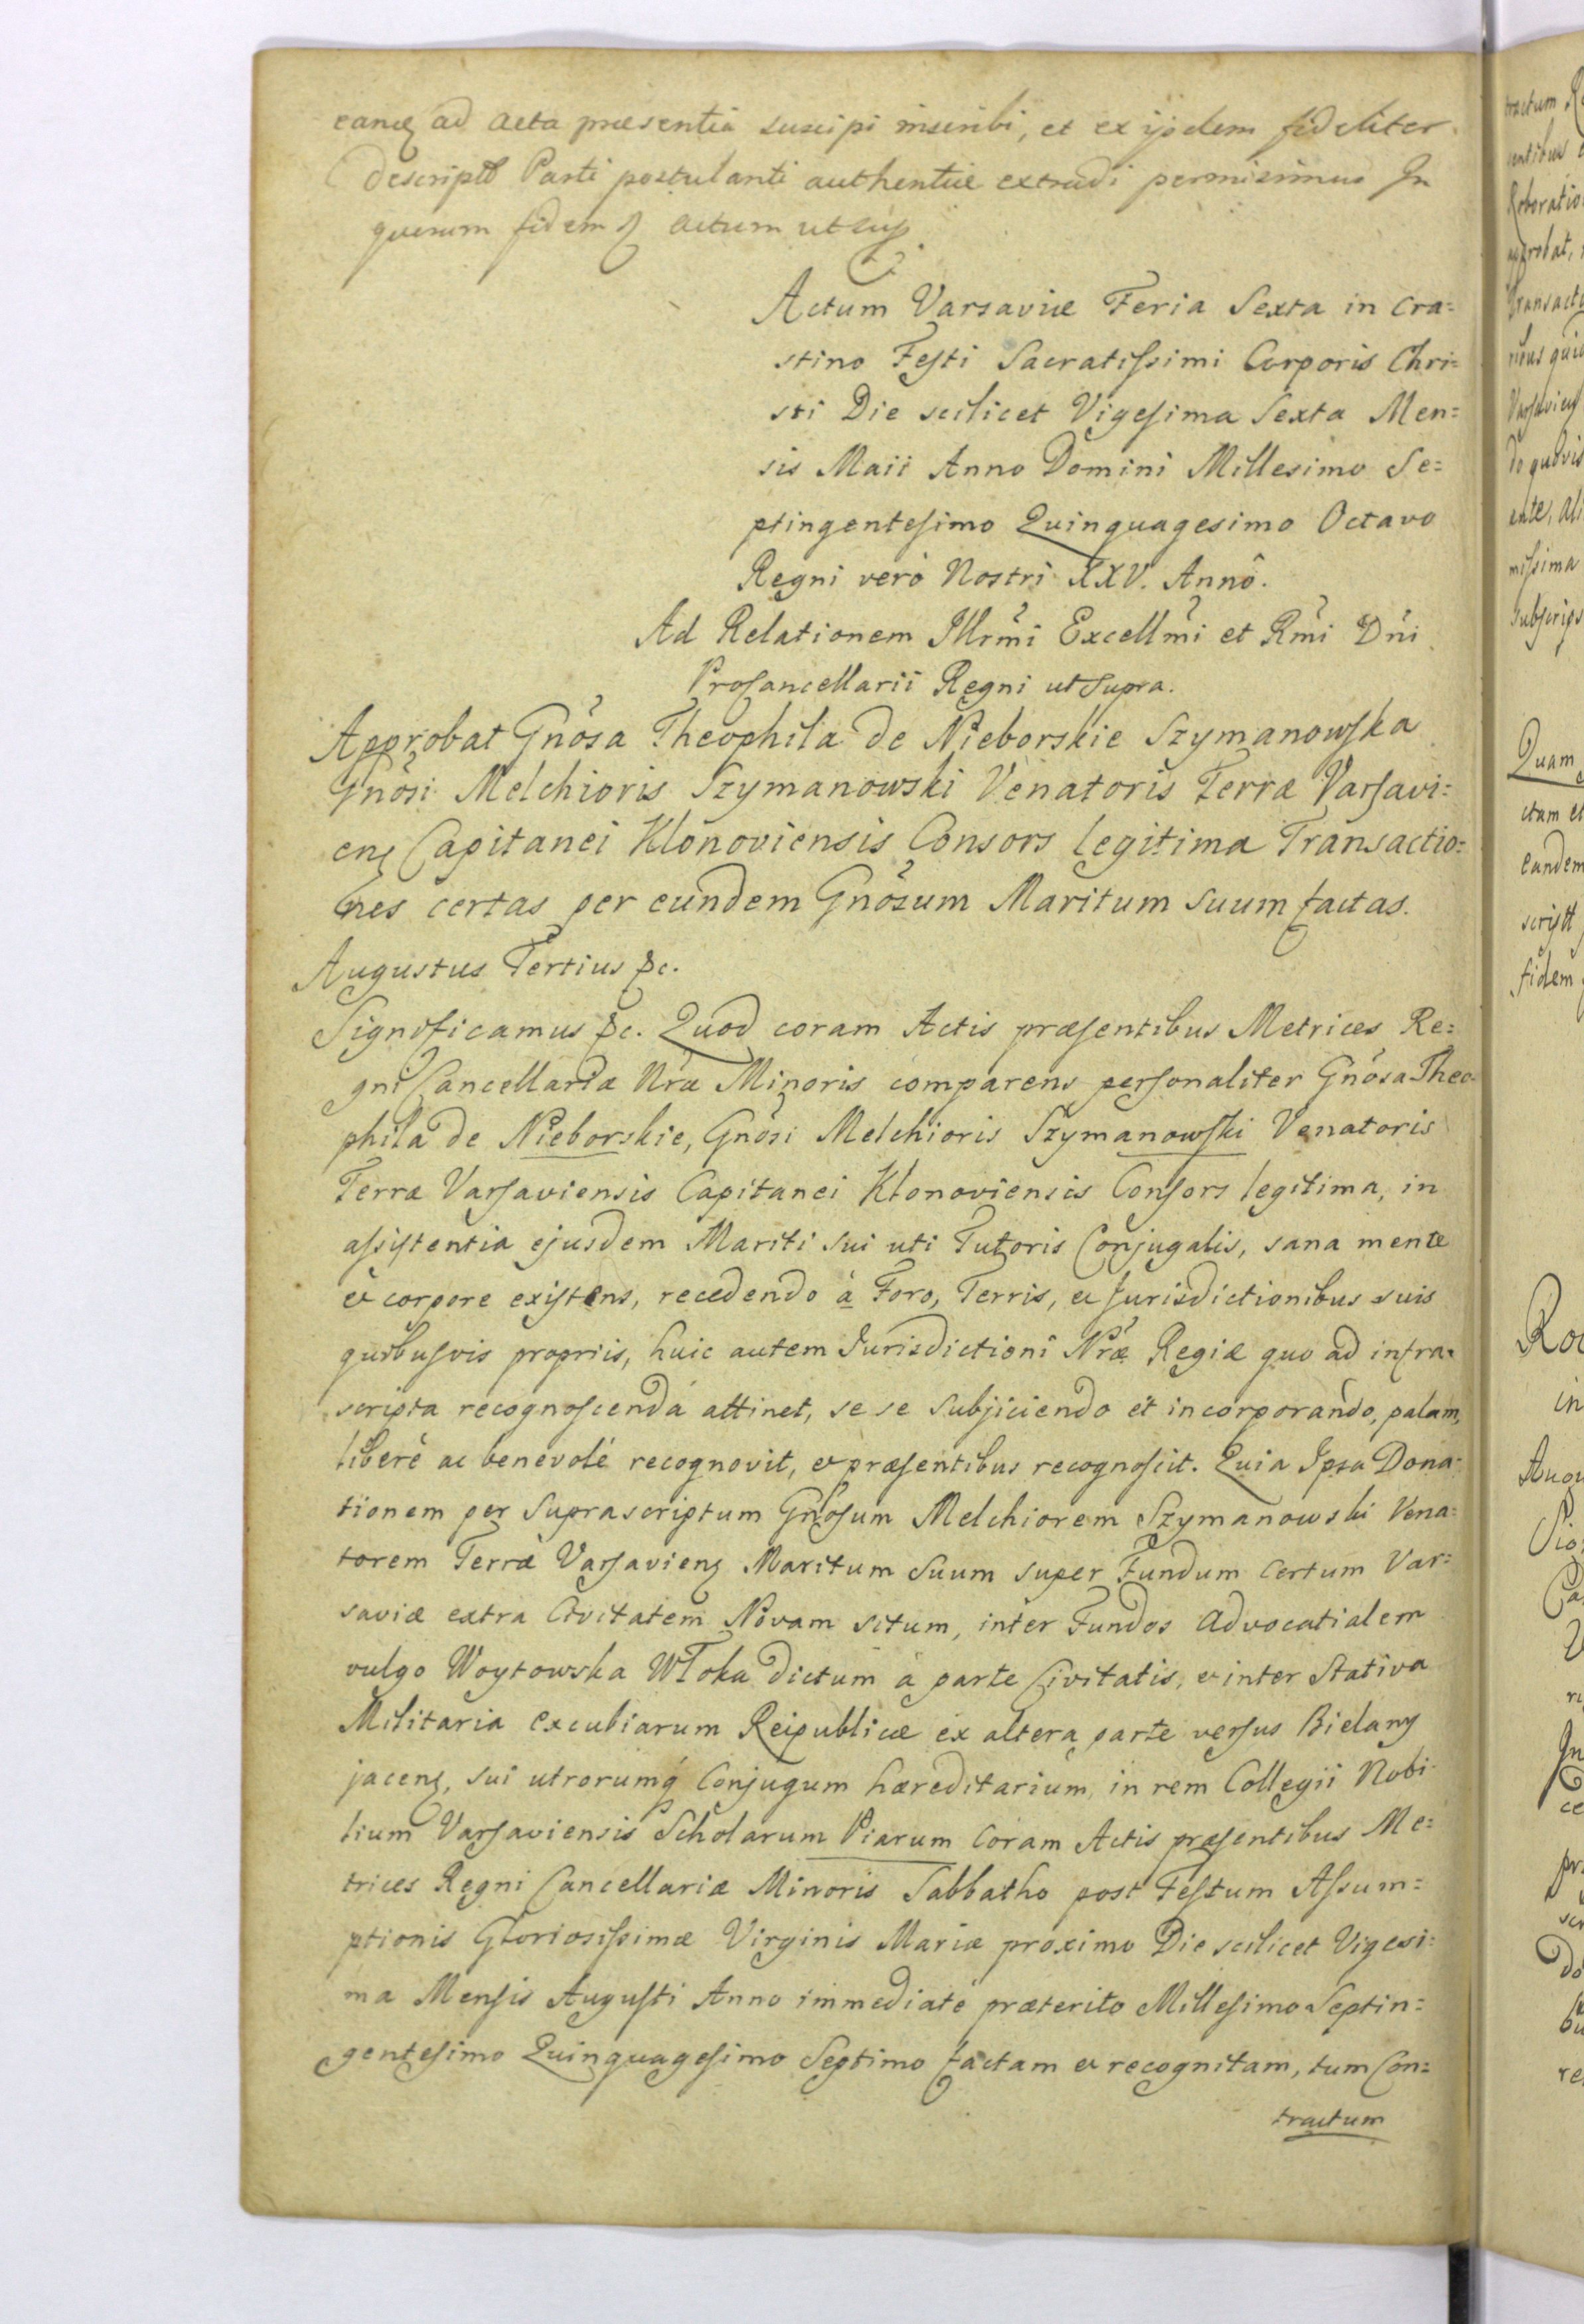 eamq ad acta præsentia suscipi inscribi, et ex ijsdem fideliter
descripto Parti postulanti authentice extradi permisimus In
quorum fidem actum ut sup.
Actum Varsaviæ Feria Sexta in Cra=
stino Festi Sacratissimi Corporis Chri=
sti Die scilicet Vigesima Sexta Men=
sis Maii Anno Domini Millesimo Se=
ptingentesimo Quinquagesimo Octavo
Regni verò Nostri XXV. Annô.
Ad Relationem Illrmi Excellmi et Rmi Dni
Procancellarii Regni ut Supra.
Approbat Gnosa Theophila de Nieborskie Szymanowska
Gnosi Melchioris Szymanowski Venatoris Terræ Varsavi=
ens Capitanei Klonoviensis Consors legitima Transactio=
nes certas per eundem Gnosum Maritum Suum factas.
Augustus Tertius &c.
Significamus &c. Quod coram Actis præsentibus Metrices Re=
gni Cancellariæ Nræ Minoris comparens personaliter Gnosa Theo=
phila de Nieborskie, Gnosi Melchioris Szymanowski Venatoris
Terræ Varsaviensis Capitanei Klonoviensis Consors legitima, in
assistentia ejusdem Mariti sui uti Tutoris Conjugalis, sana mente
et corpore existens, recedendo à Foro, Terris, et Jurisdictionibus suis
quibusvis propriis, huic autem Jurisdictioni Nræ Regiæ quo ad infra=
scripta recognoscenda attinet, se se subjiciendo et incorporando, palam,
liberè ac benevolè recognovit, et præsentibus recognoscit. Quia Ipsa Dona=
tionem per Suprascriptum Gnosum Melchiorem Szymanowski Vena=
torem Terræ Varsaviens Maritum Suum super Fundum certum Var=
saviæ extra Civitatem Novam situm, inter Fundos Advocatialem
vulgo Woytowska Włoka dictum à parte Civitatis, et inter Stativa
Militaria excubiarum Reipublicæ ex altera parte versus Bielany
jacens, sui utrorumq Conjugum hæreditarium, in rem Collegii Nobi=
lium Varsaviensis Scholarum Piarum Coram Actis præsentibus Me=
trices Regni Cancellariæ Minoris Sabbatho post Festum Assum=
ptionis Gloriosissimæ Virginis Mariæ proximo Die scilicet Vigesi=
ma Mensis Augusti Anno immediatè præterito Millesimo Septin=
gentesimo Quinquagesimo Septimo factam et recognitam, tum Con=
tractum